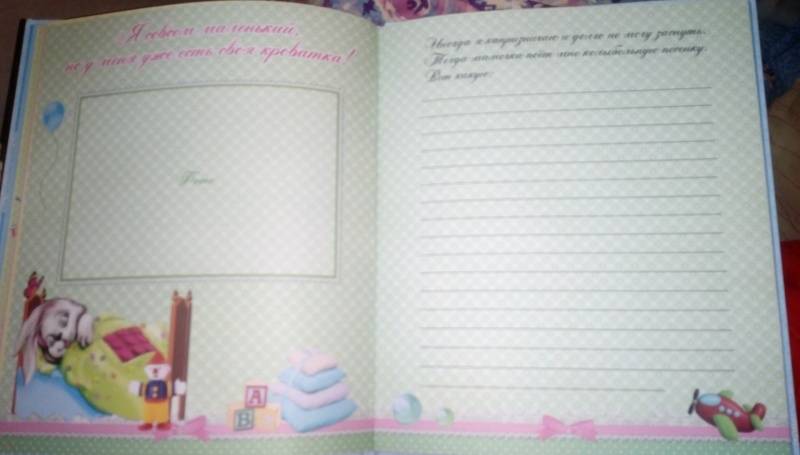 Я совсем маленький,
но у меня уже есть своя кроватка!
Фото
Иногда я капризничаю и долго не могу заснуть.
Тогда мамочка поёт мне колыбельную песенку.
Вот какую:
A
B